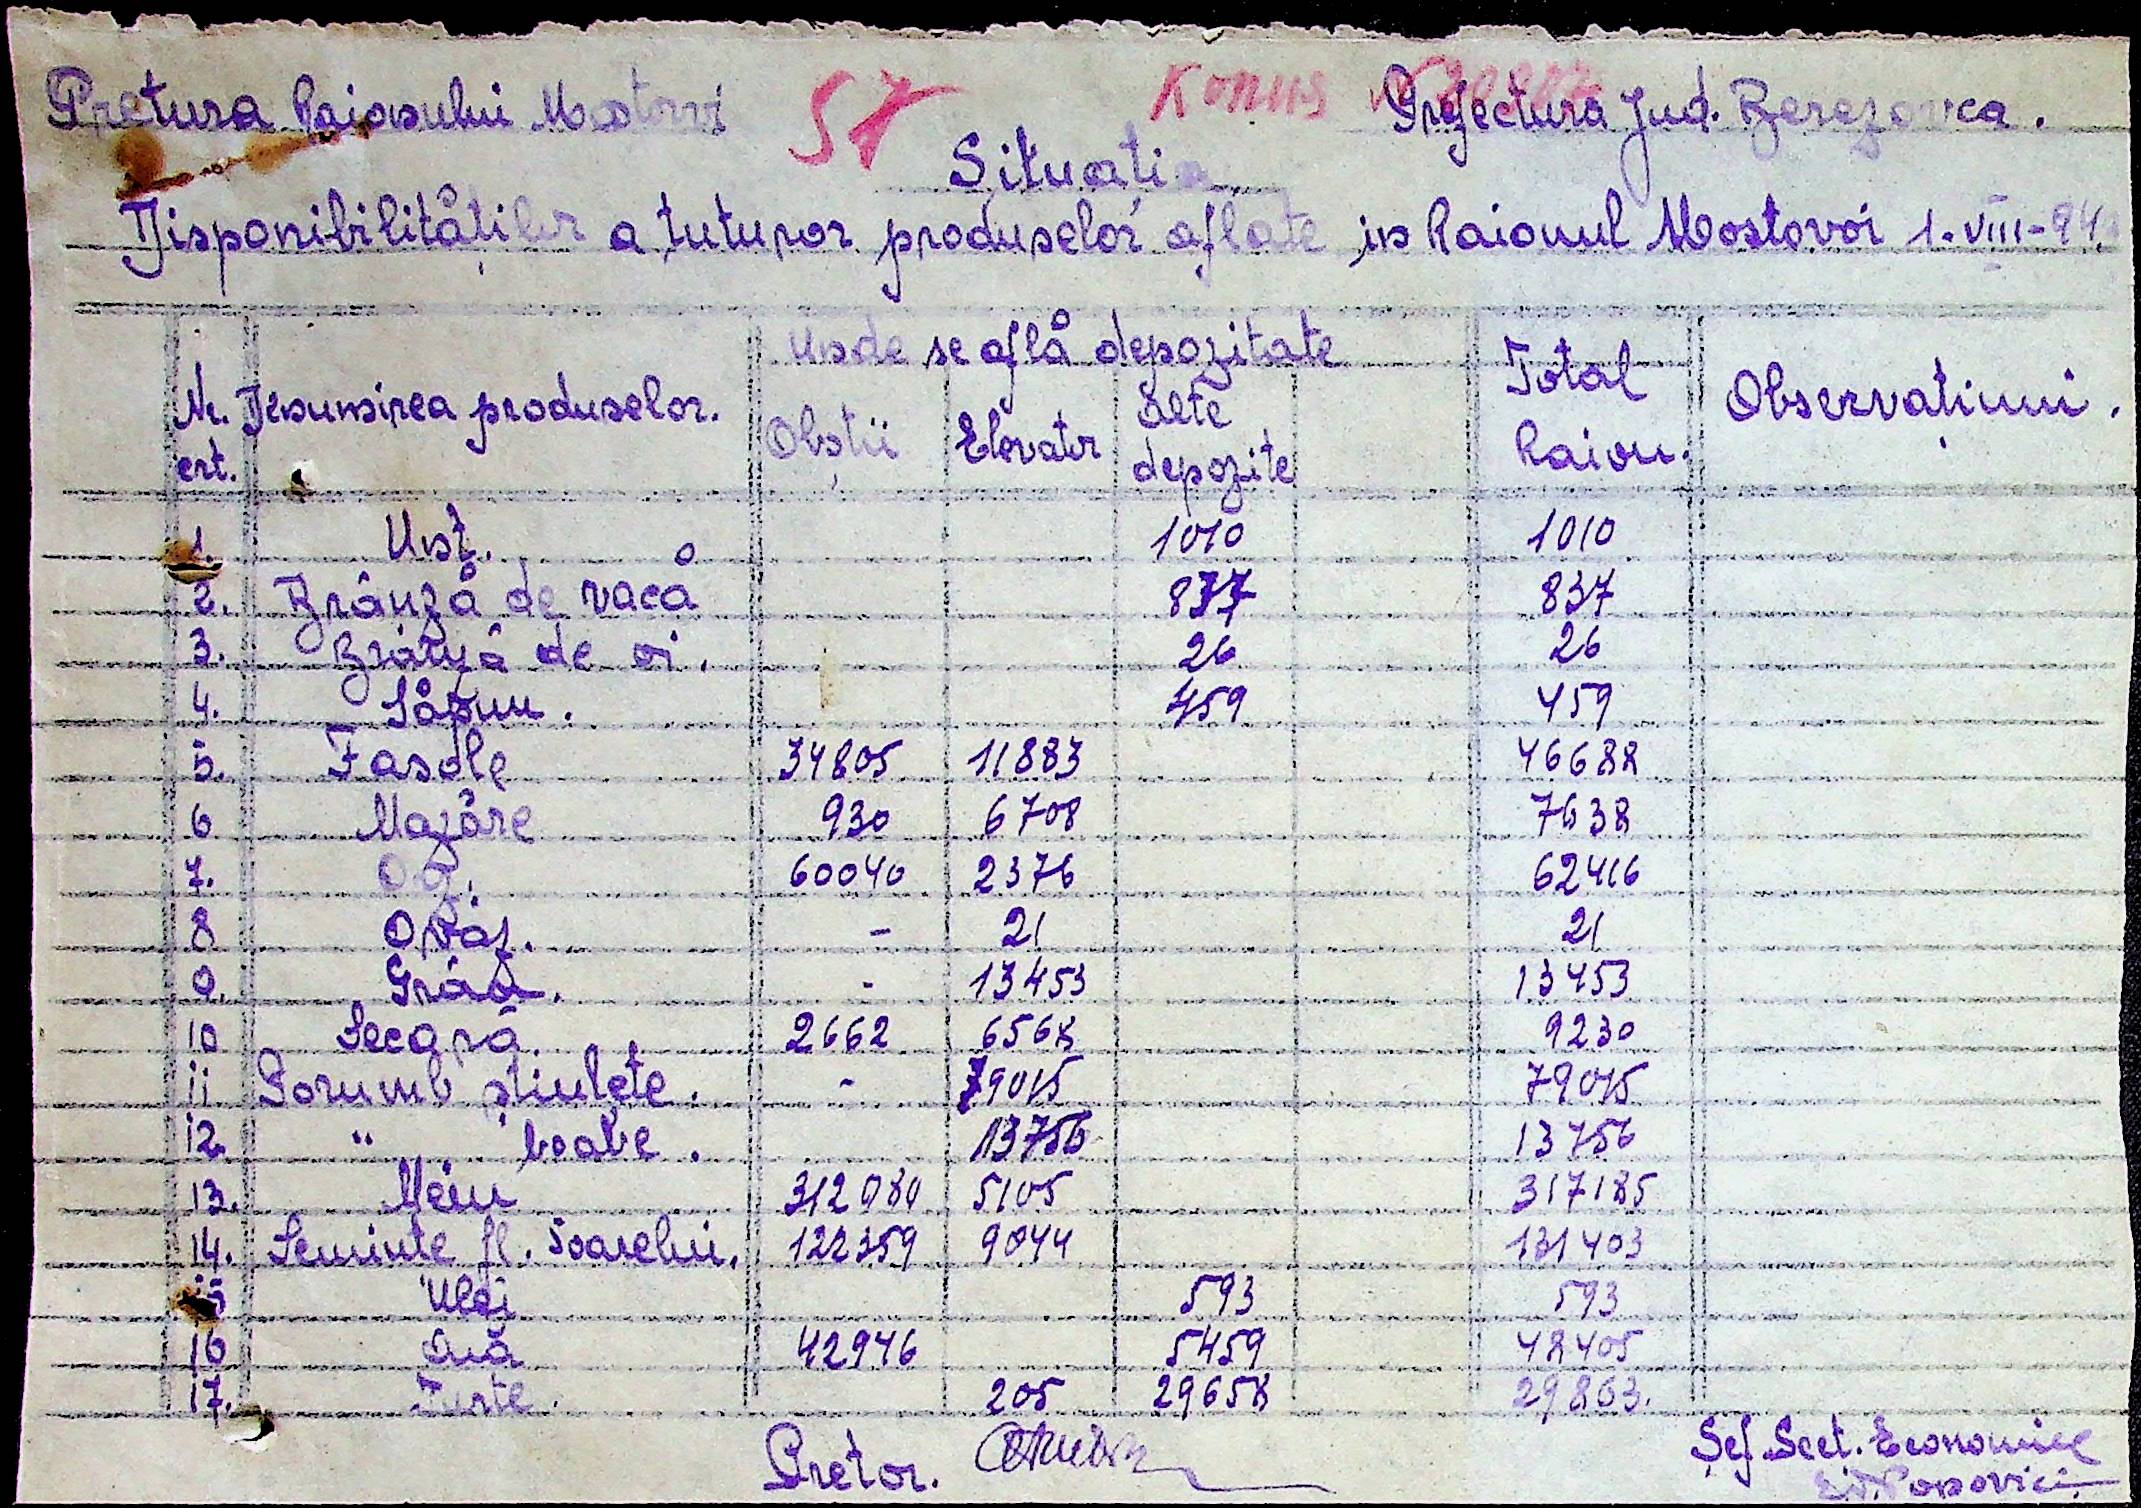 Pretura Raionului Mostovoi 57 Копия Prefectura Jud. Berezovca.
Situația
Disponibilităților a tuturor produselor aflate in Raionul Mostovoi 1.VIII-94
Nr. crt. Denumirea produselor. Unde se află depozitate Total Raion. Observațiuni.
Obștii Elevator Alte depozite
1. Unt. 1010 1010
2. Brânză de vacă 837 837
3. Brânză de oi. 26 26
4. Săpun. 459 459
5. Fasole 34805 11883 46688
6 Mazăre 930 6708 7638
7. Orz. 60040 2376 62416
8 Ovăz. - 21 21
9. Grâu. - 13453 13453
10 Secară. 2662 6568 9230
11 Porumb știulete. - 79015 79015
12. " boabe. 13756 13756
13. Meiu 312080 5105 317185
14. Seminte fl. Soarelui. 122359 9044 131403
15 Ulei 593 593
16 42946 5459 48405
17. Turte. 205 29658 29863.
Pretor. Șef Sect. Economic
Popovici